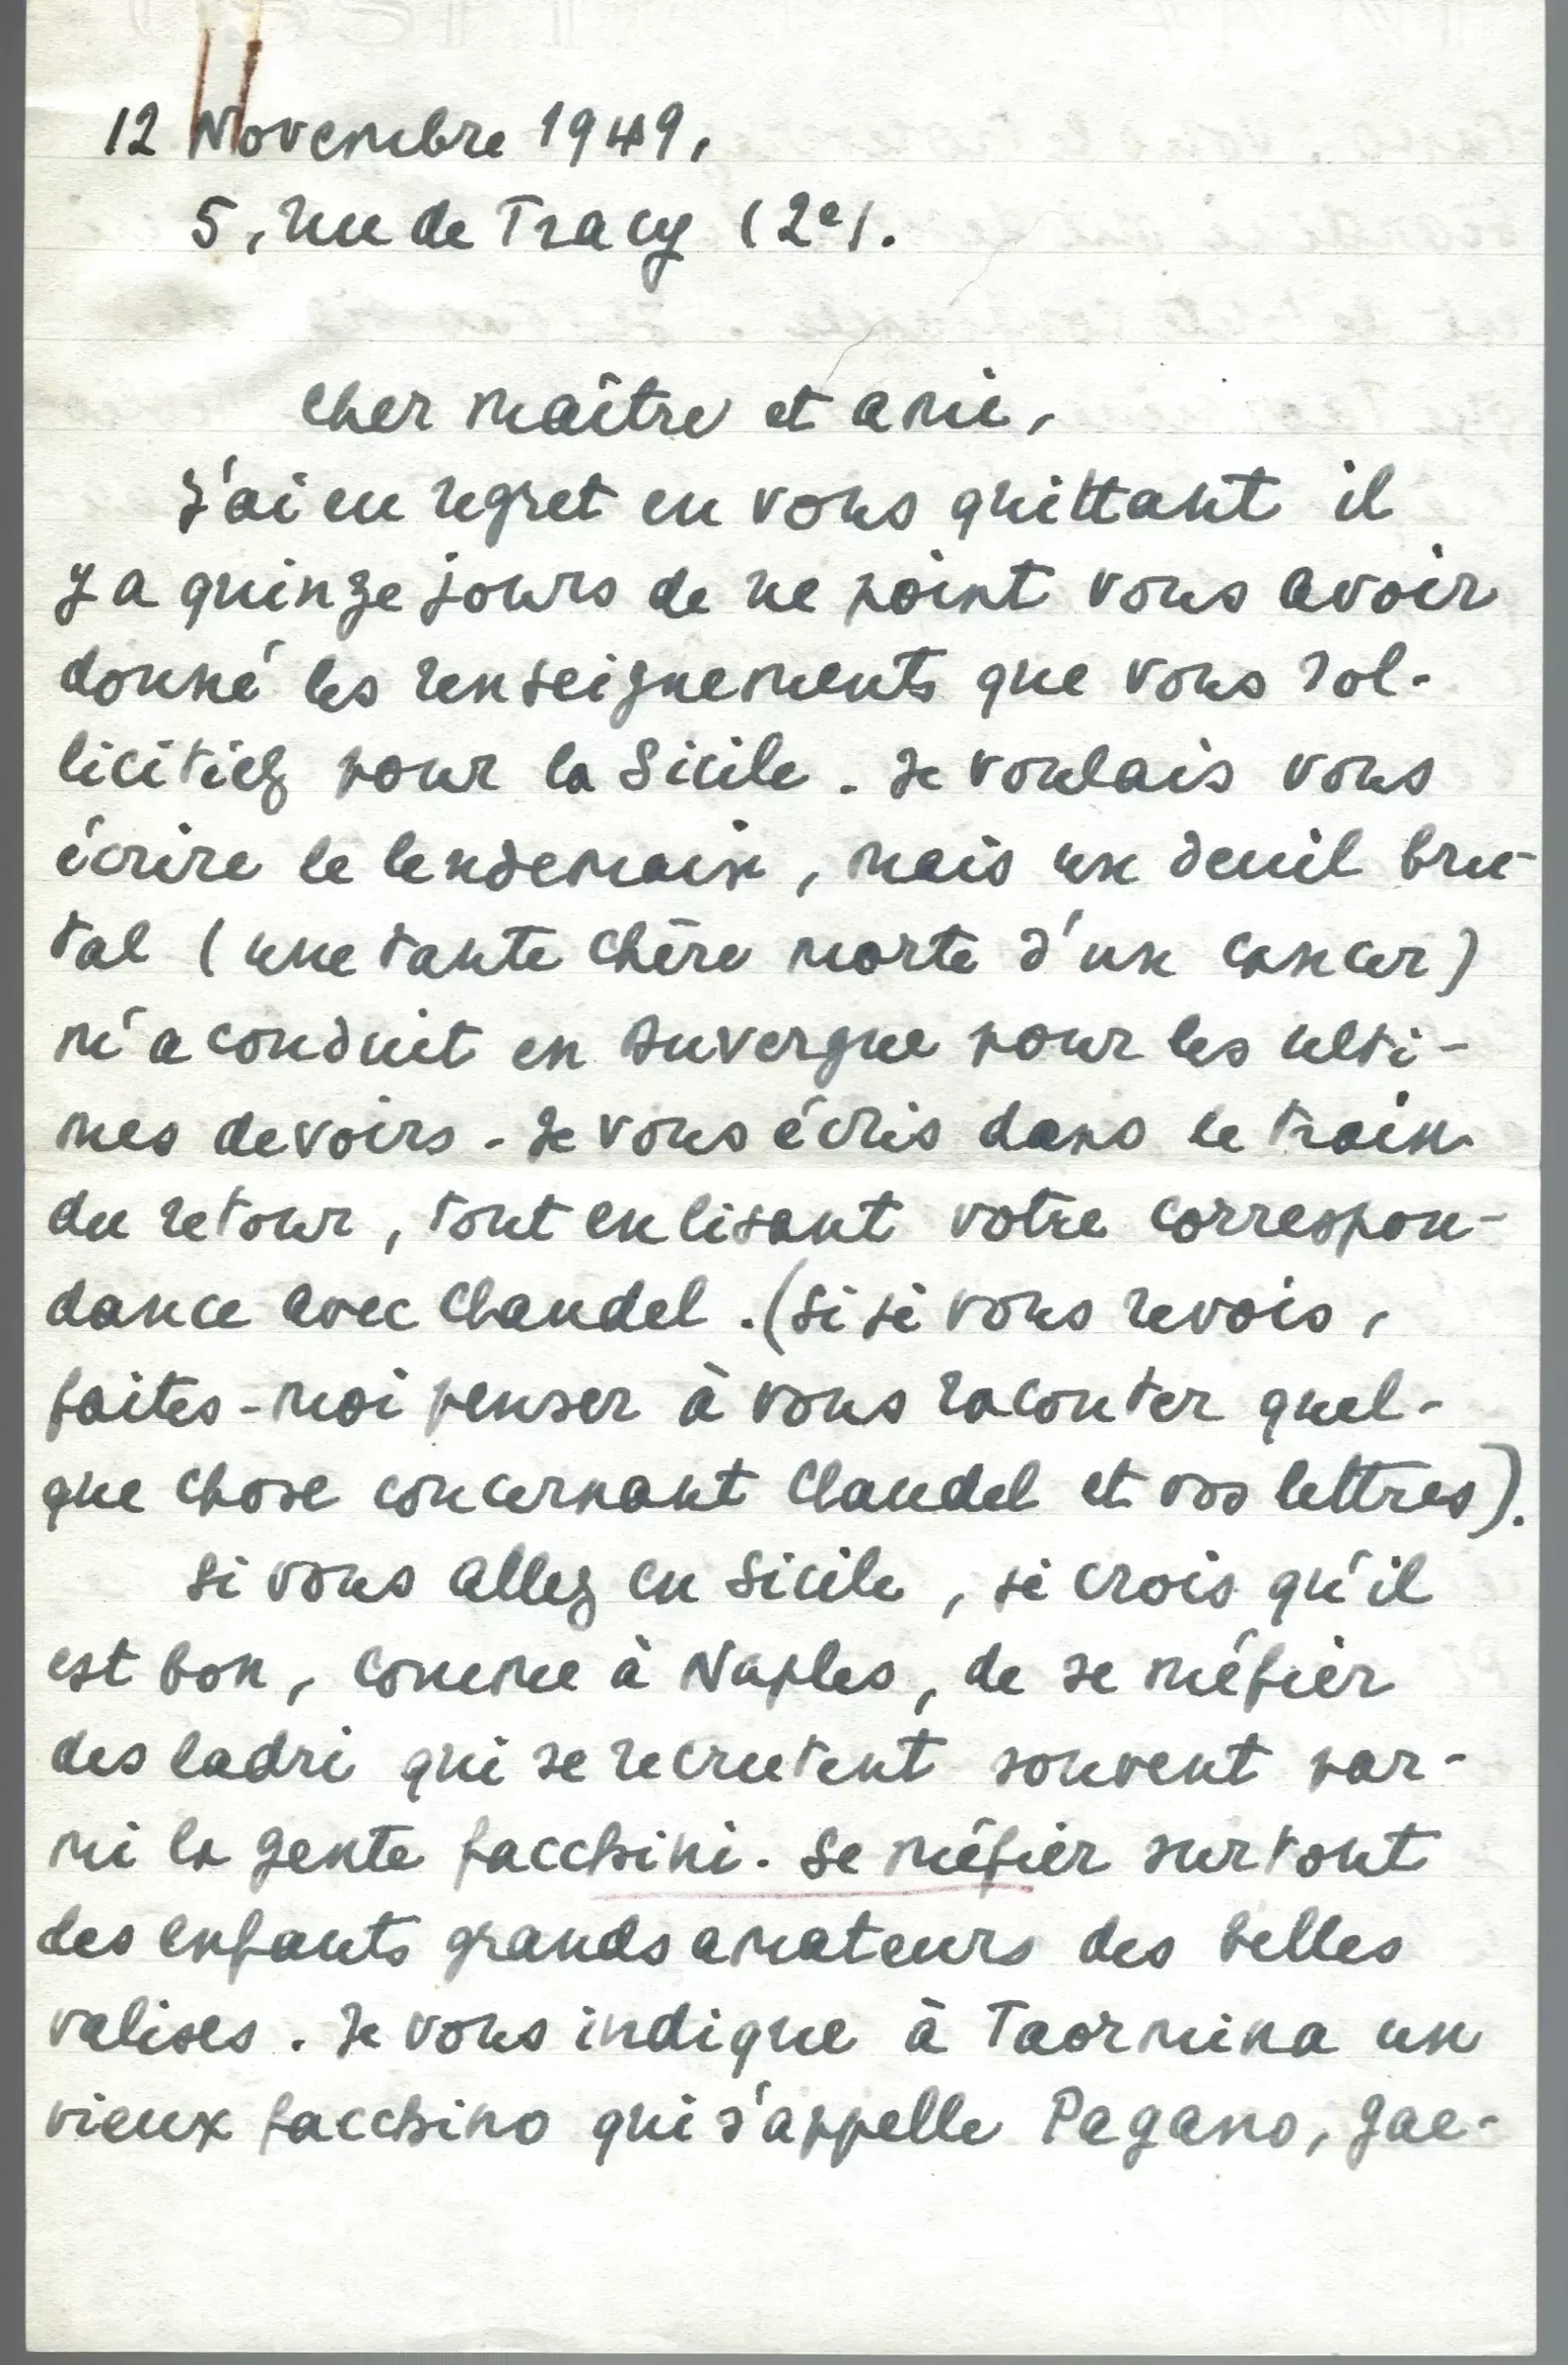 12 Novembre 1949,
5, rue de Tracy (2e).
Cher maître et ami,
J'ai eu regret en vous quittant il
y a quinze jours de ne point vous avoir
donné les renseignements que vous sol-
licitiez pour la Sicile. Je voulais vous
écrire le lendemain, mais un deuil bru-
tal (une tante chère morte d'un cancer)
m'a conduit en Auvergne pour les ulti-
mes devoirs. Je vous écris dans le train
du retour, tout en lisant votre correspon-
dance avec Claudel. (Si je vous revois,
faites-moi penser à vous raconter quel-
que chose concernant Claudel et vos lettres).
Si vous allez en Sicile, je crois qu'il
est bon, comme à Naples, de se méfier
des ladri qui se recrutent souvent par-
mi la gente facchini. Se méfier surtout
des enfants grands amateurs des belles
valises. Je vous indique à Taormina un
vieux facchino qui s'appelle Pagano, gae-